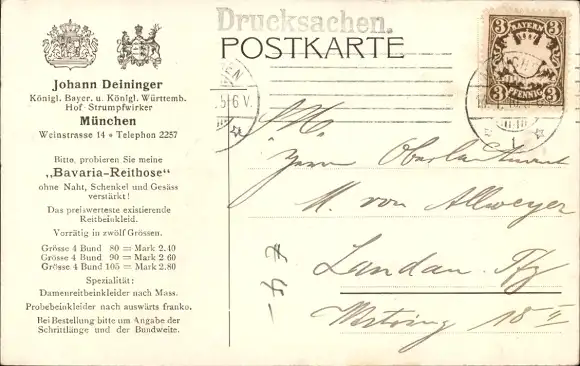 Drucksachen.
POSTKARTE
Johann Deininger
Königl. Bayer. u. Königl. Württemb.
Hof-Strumpfwirker
München
Weinstrasse 14 • Telephon 2257
Bitte, probieren Sie meine
„Bavaria-Reithose“
ohne Naht, Schenkel und Gesäss
verstärkt!
Das preiswerteste existierende
Reitbeinkleid.
Vorrätig in zwölf Grössen.
Grösse 4 Bund 80 = Mark 2.40
Grösse 4 Bund 90 = Mark 2 60
Grösse 4 Bund 105 = Mark 2.80
Spezialität:
Damenreitbeinkleider nach Mass.
Probebeinkleider nach auswärts franko.
Bei Bestellung bitte um Angabe der
Schrittlänge und der Bundweite.
3 BAYERN 3
3 PFENNIG 3
5-6 V.
1
Herrn Oberleutnant
von Allweyer
Landau Pfz
18 II